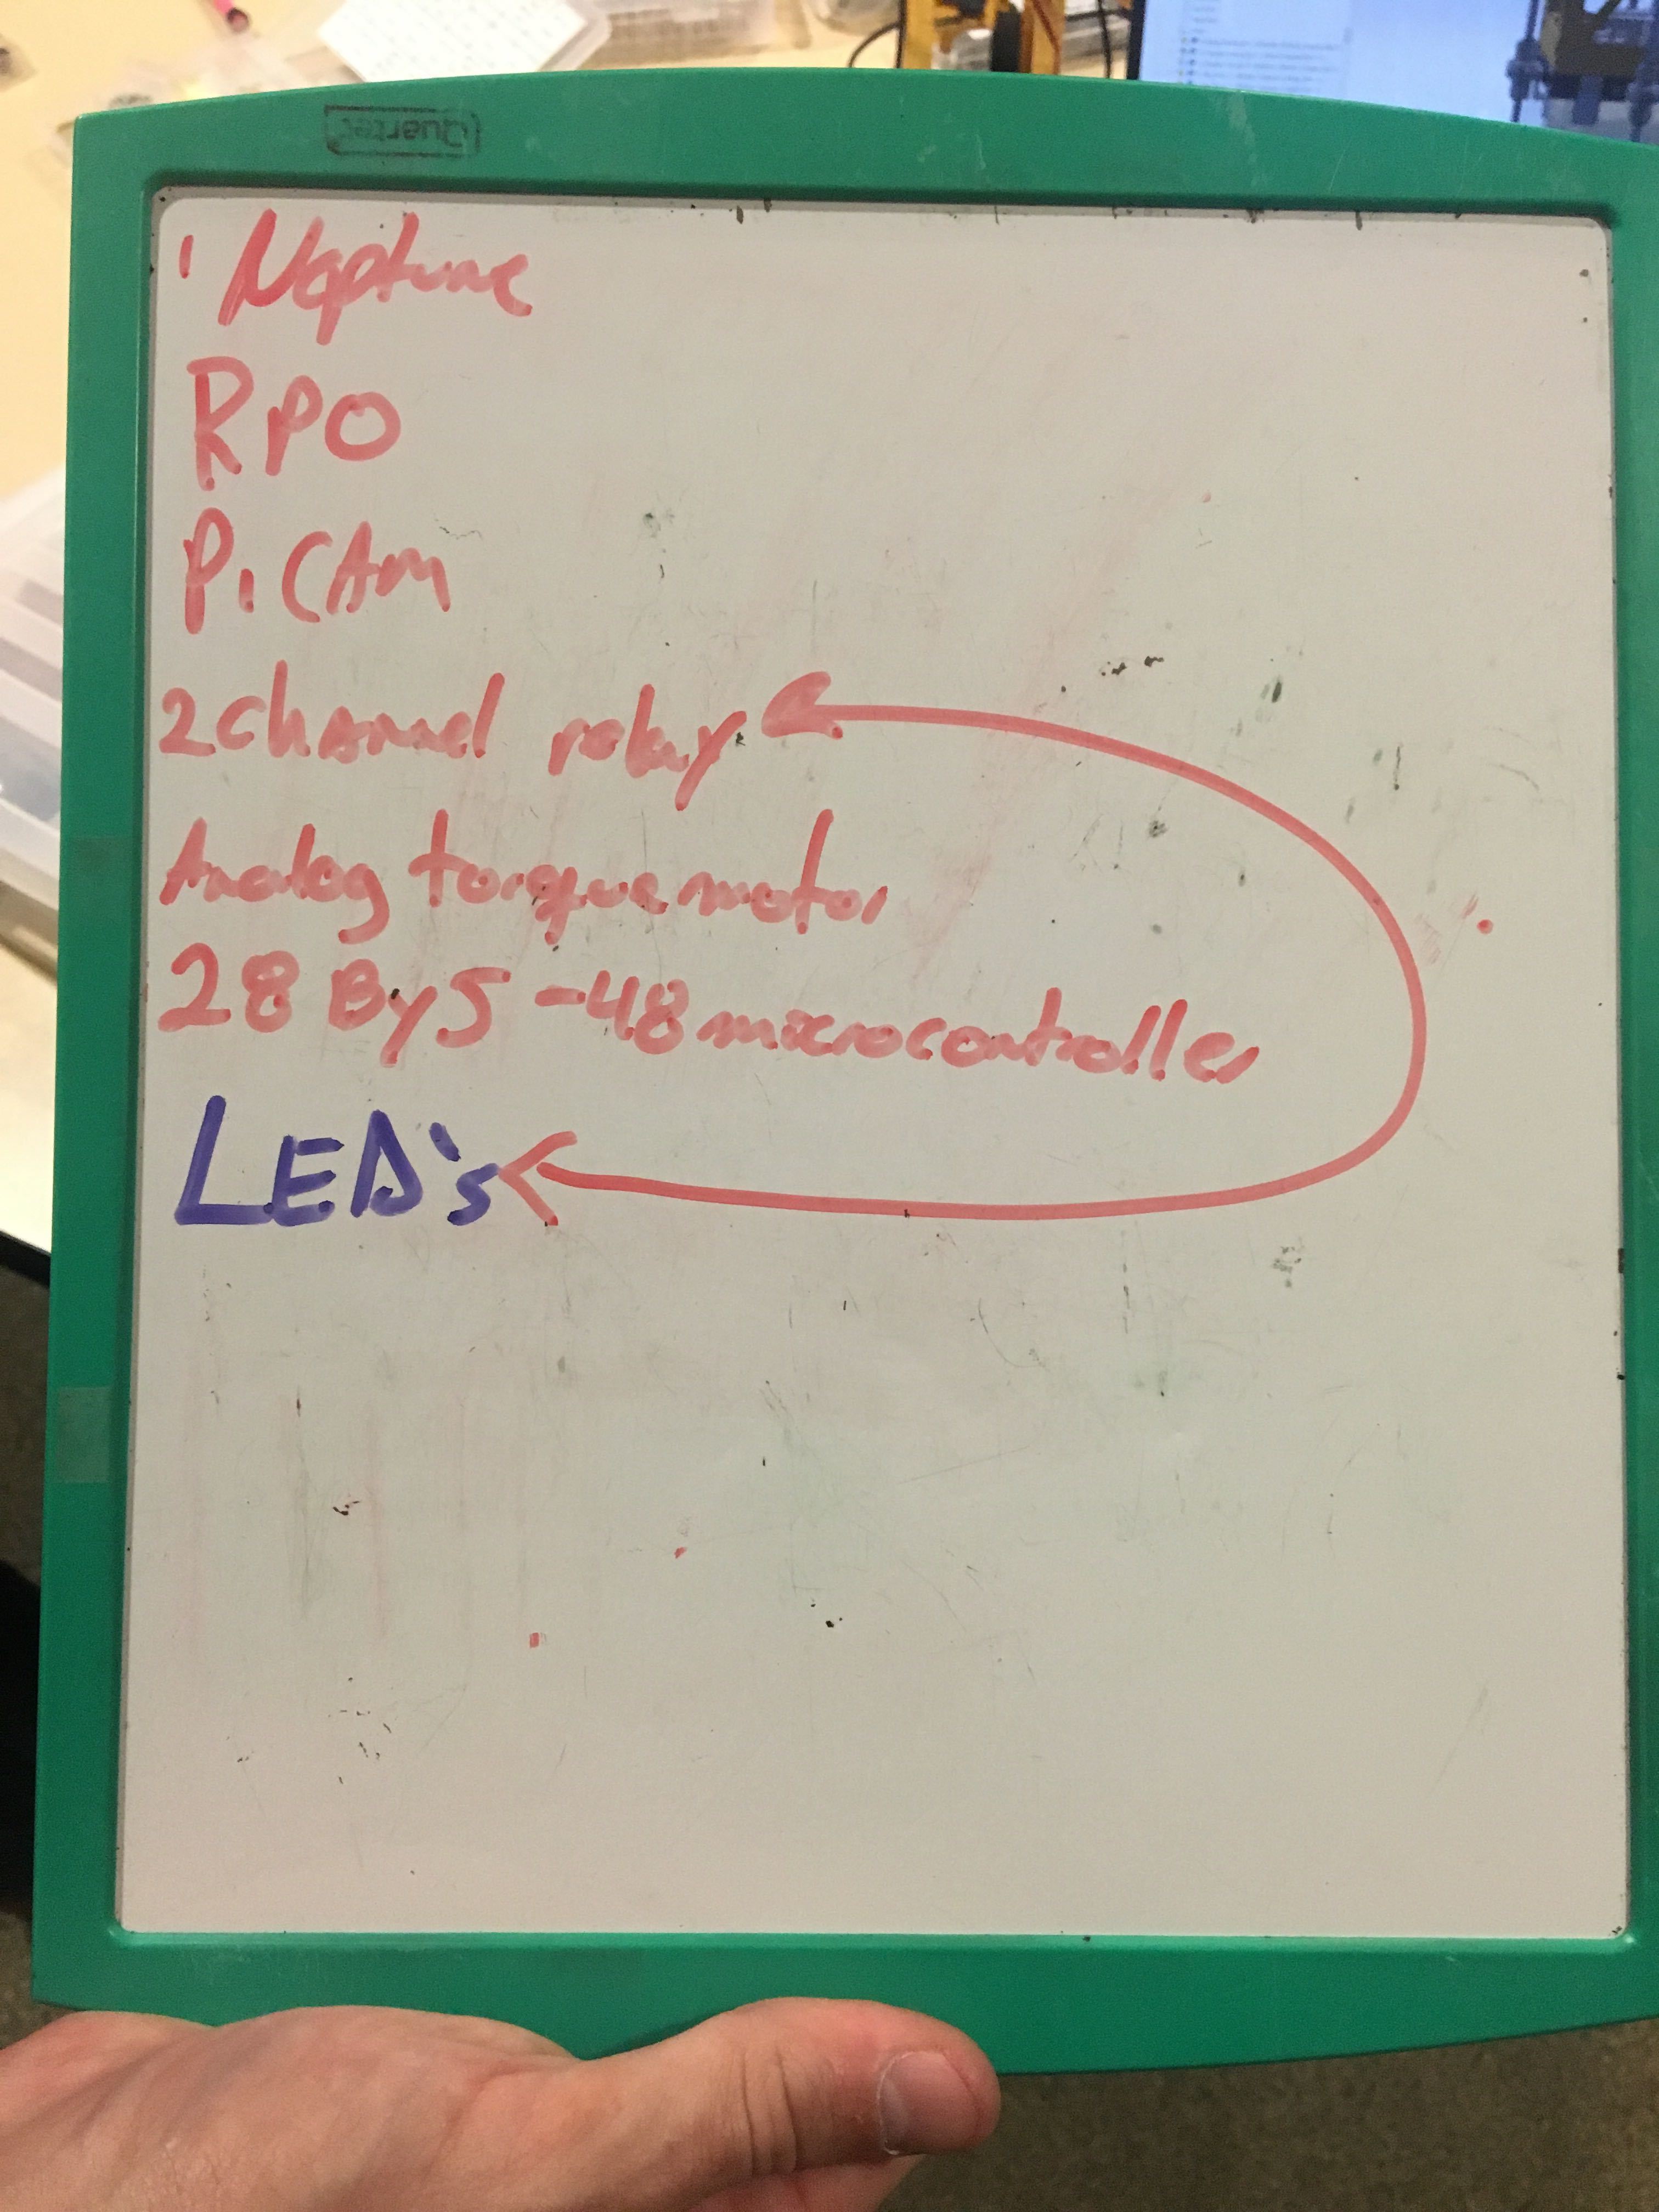 Quartet
' Neptune
RPO
Pi CAm
2 channel relay
Analog torque motor
28 By5 -48 microcontroller
LED's